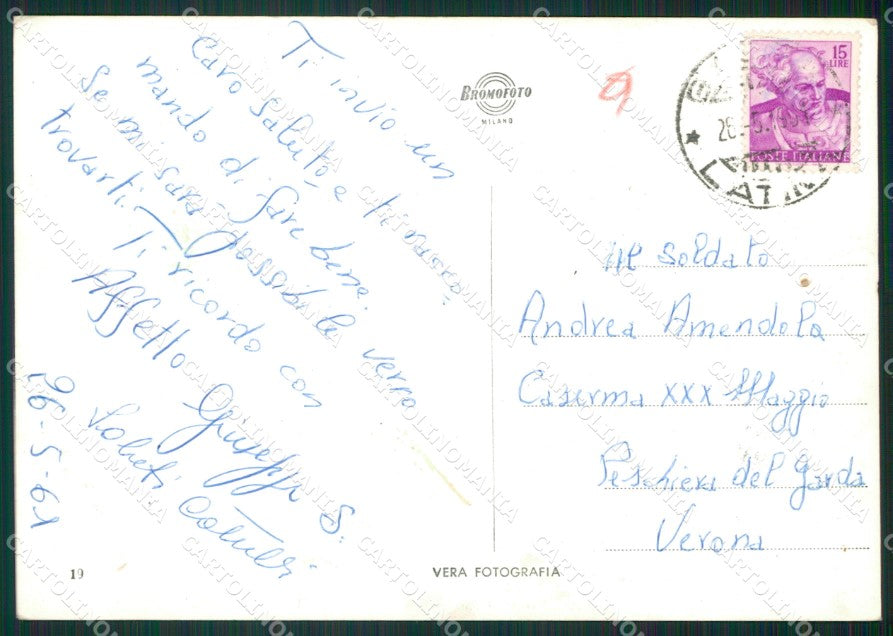 Ti invio un
caro saluto, e ti racco:
mando di fare bene.
Se mi sarà possibile verro
trovarti. Ti ricordo con
Affetto Giuseppe S.
Saluti
26-5-61
BROMOFOTO
MILANO
15
LIRE
POSTE ITALIANE
LATINA
Al Soldato
Andrea Amendola
Caserma XXX Maggio
Peschiera del Garda
Verona
19
VERA FOTOGRAFIA
CARTOLINOMANIA